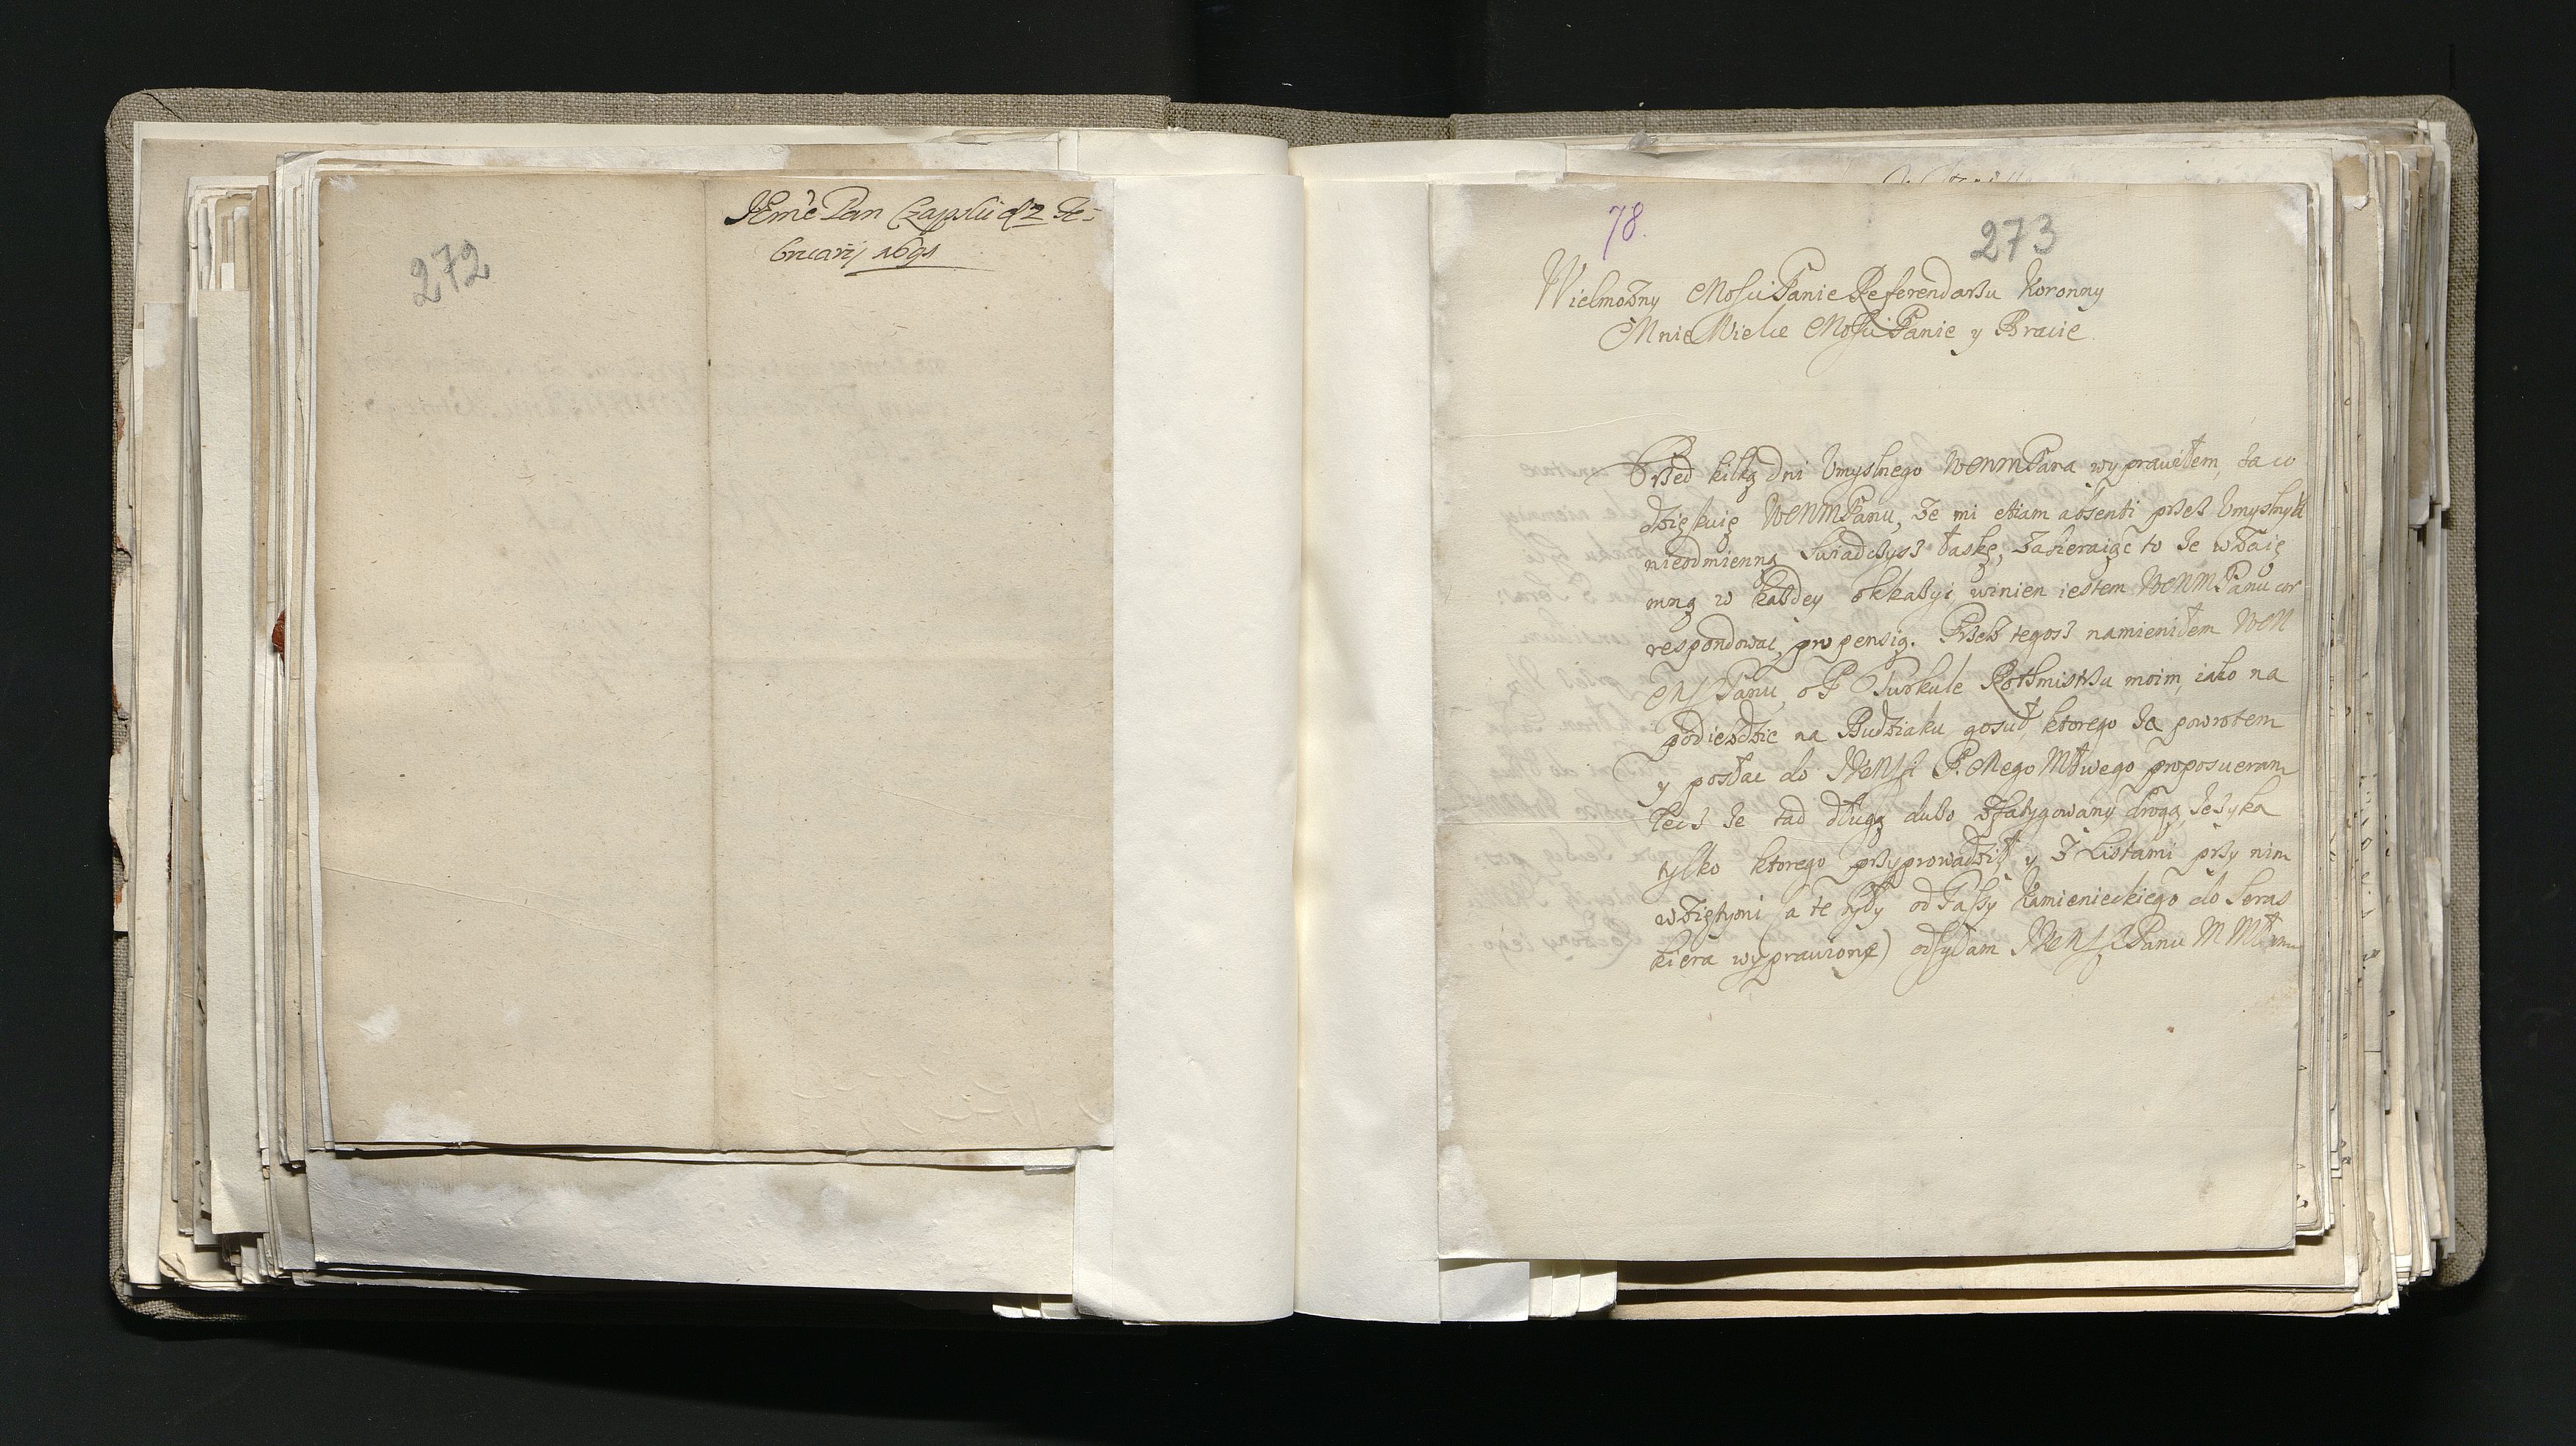 272
JEmć Pan Czapski d 2 Fe-
bruarij 1691
78.
273
Wielmożny Mości Panie Referendarzu Koronny
Mnie Wielce Mości Panie y Bracie.
Przed kilką dni Umyslnego WMMPana wyprawiłem, za co
dziękuię WMMPanu, że mi etiam absenti przez Umyslnych
nieodmienną Swiadczysz łaskę, Zabieraiąc to że wzaię
mną w każdey okkazyi winien iestem WMMPanu cor
respondować propensią. Przez tegosz namieniłem WM
MPanu, o P Turkule Rothmistrzu moim, iako na
podiezdzie na Budziaku gosuł, ktorego za powrotem
y posłac do JKMsci P. Mego Młwego proposueram
lecz że tad długą dubo sfatygowany drogą, Języka
tylko ktorego przyprowadził y z Listami przy nim
wziętymi (a te były od Paszy Kamienieckiego do Seras
kiera wyprawione) odsyłam JKMsci Panu M Młmu